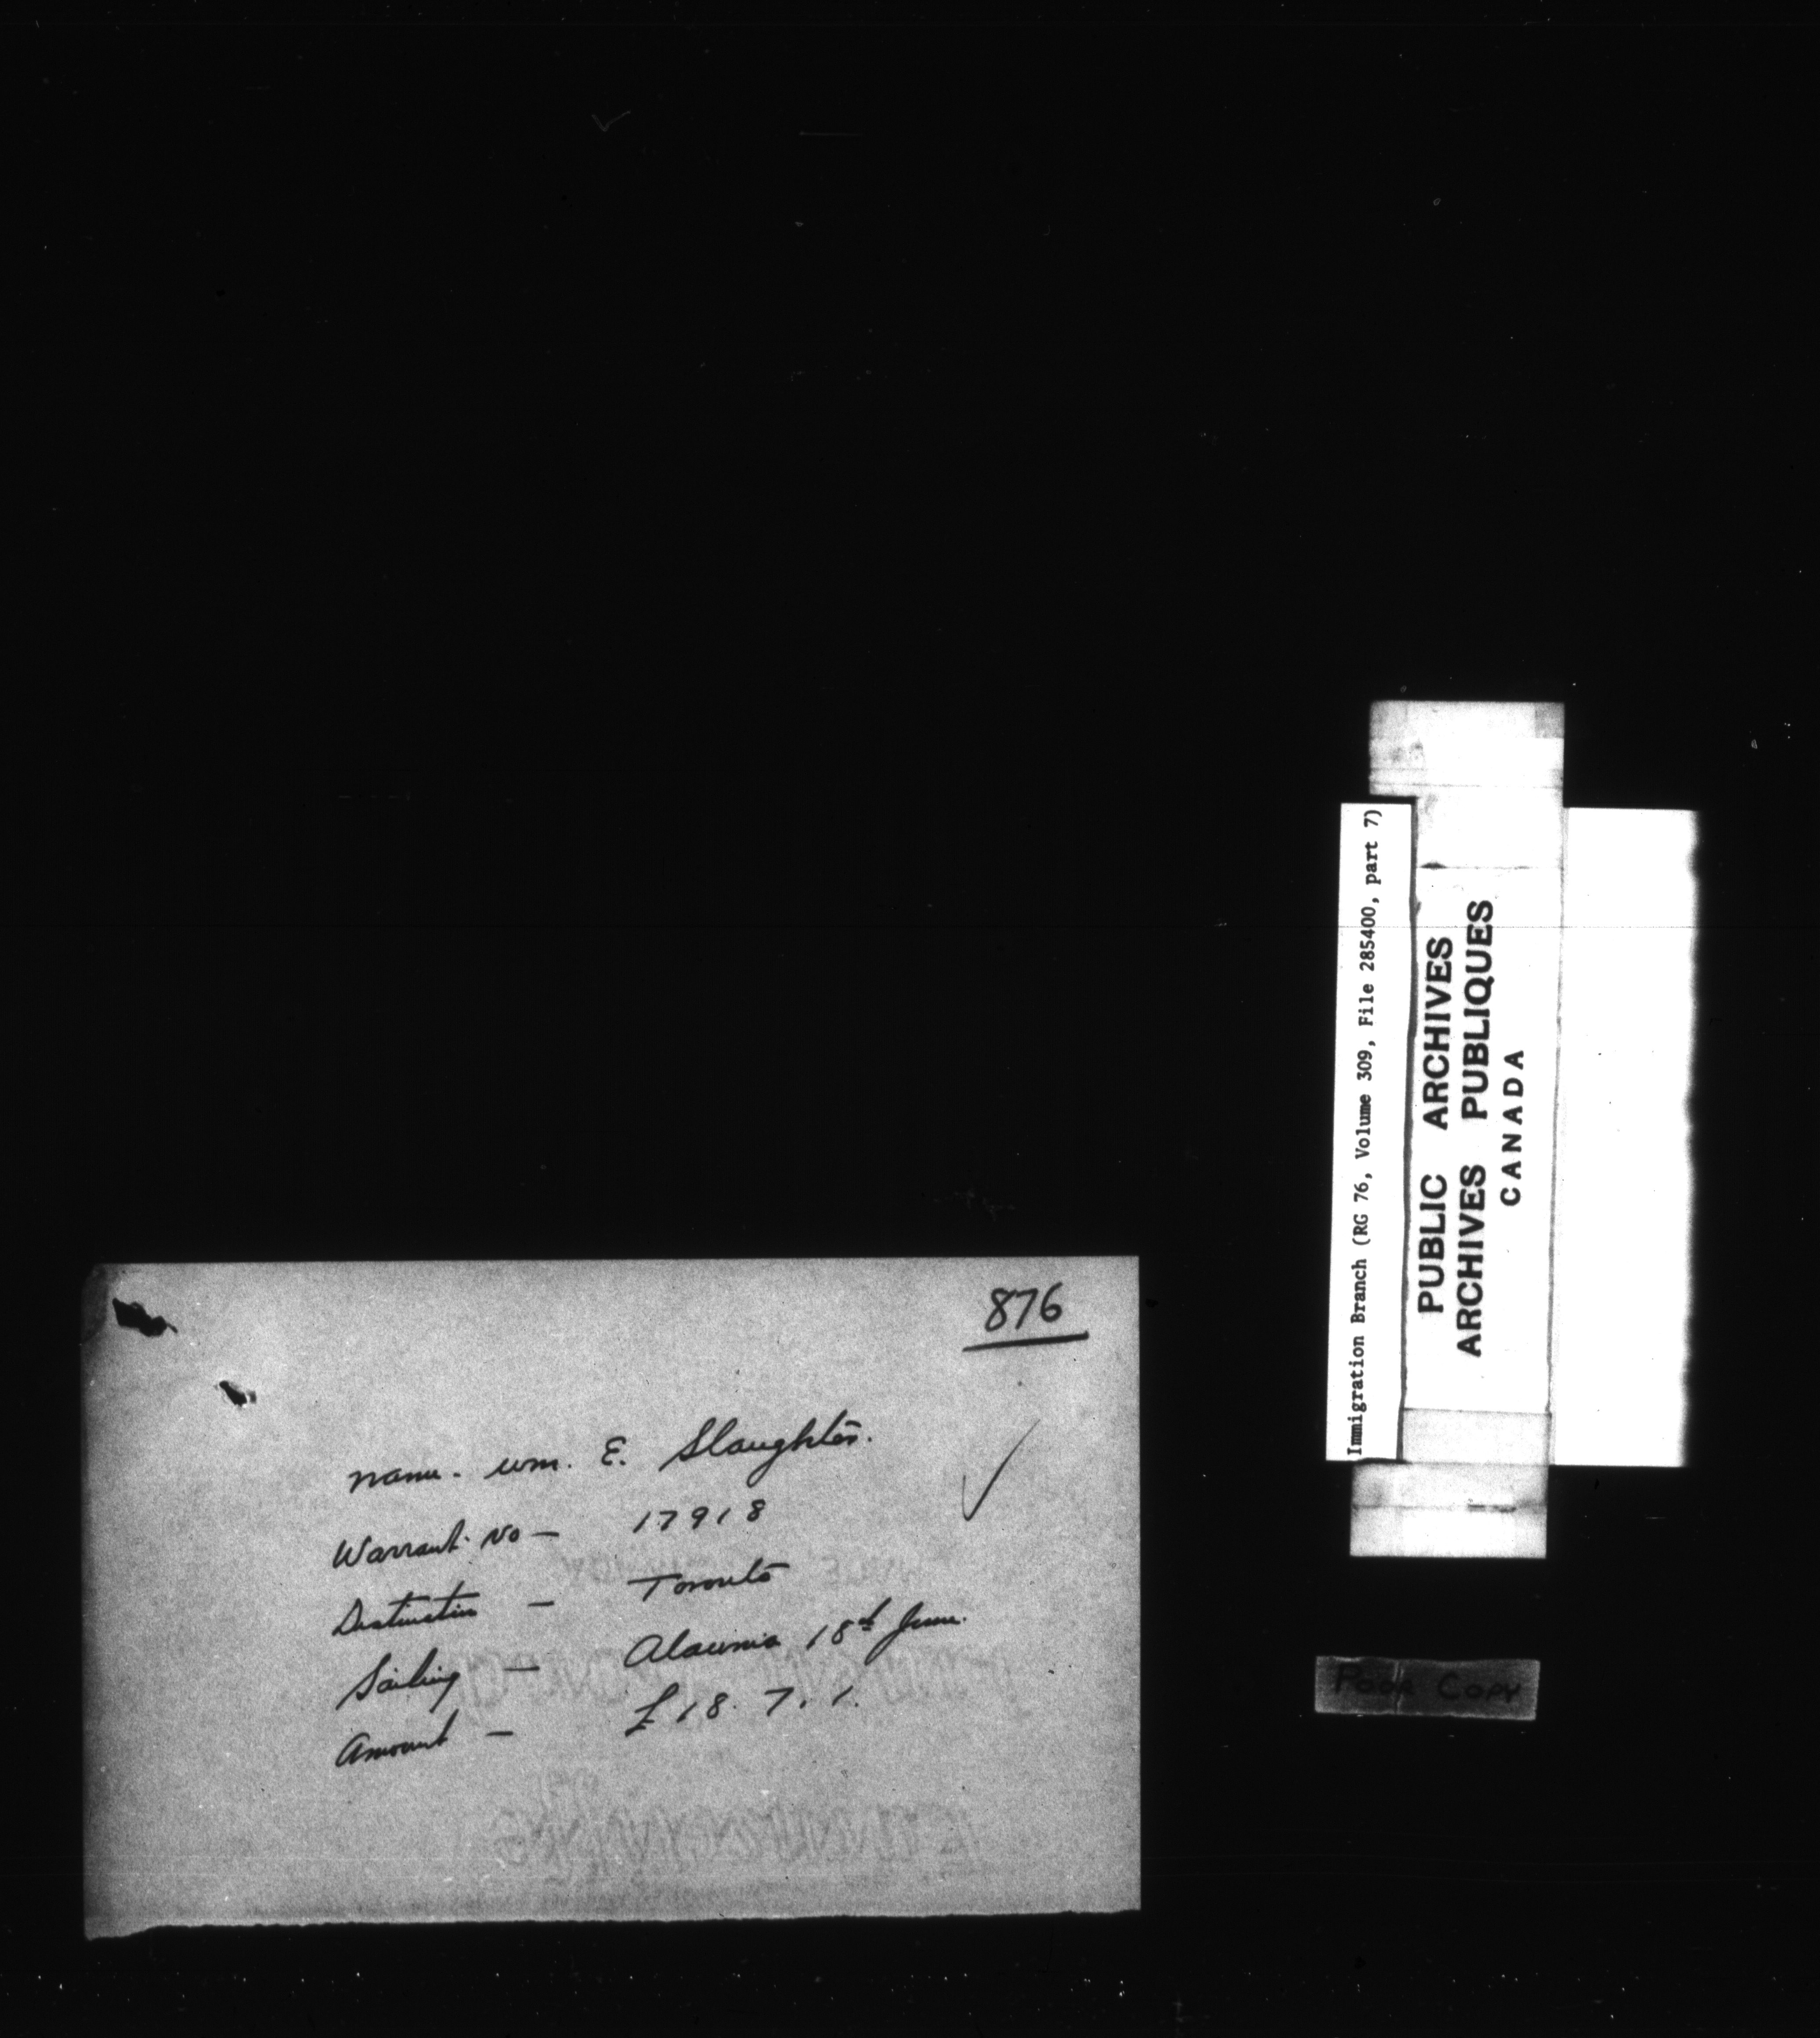 876
Name - Wm. E. Slaughter.
Warrant No - 17918
Destination - Toronto
Sailing - Alaunia 18th June.
Amount - £18. 7. 1.
Immigration Branch (RG 76, Volume 309, File 285400, part 7)
PUBLIC ARCHIVES
ARCHIVES PUBLIQUES
CANADA
Poor Copy